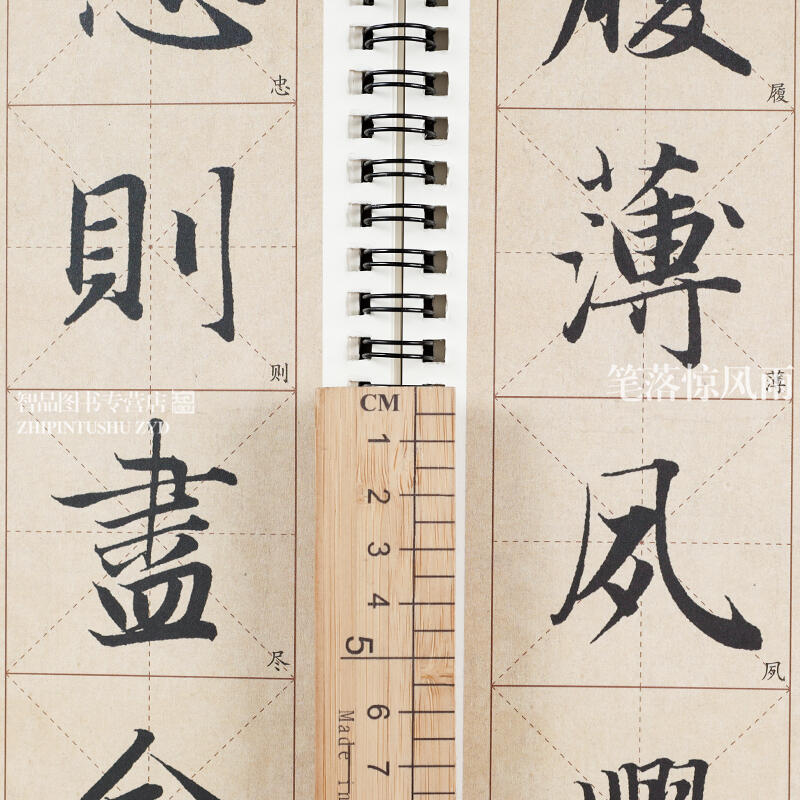 忠
則
则
智品图书专营店
ZHIPINTUSHU ZYD
盡
尽
CM
1
2
3
4
5
6
7
Made in
履
履
薄
薄
笔落惊风雨
夙
夙
興